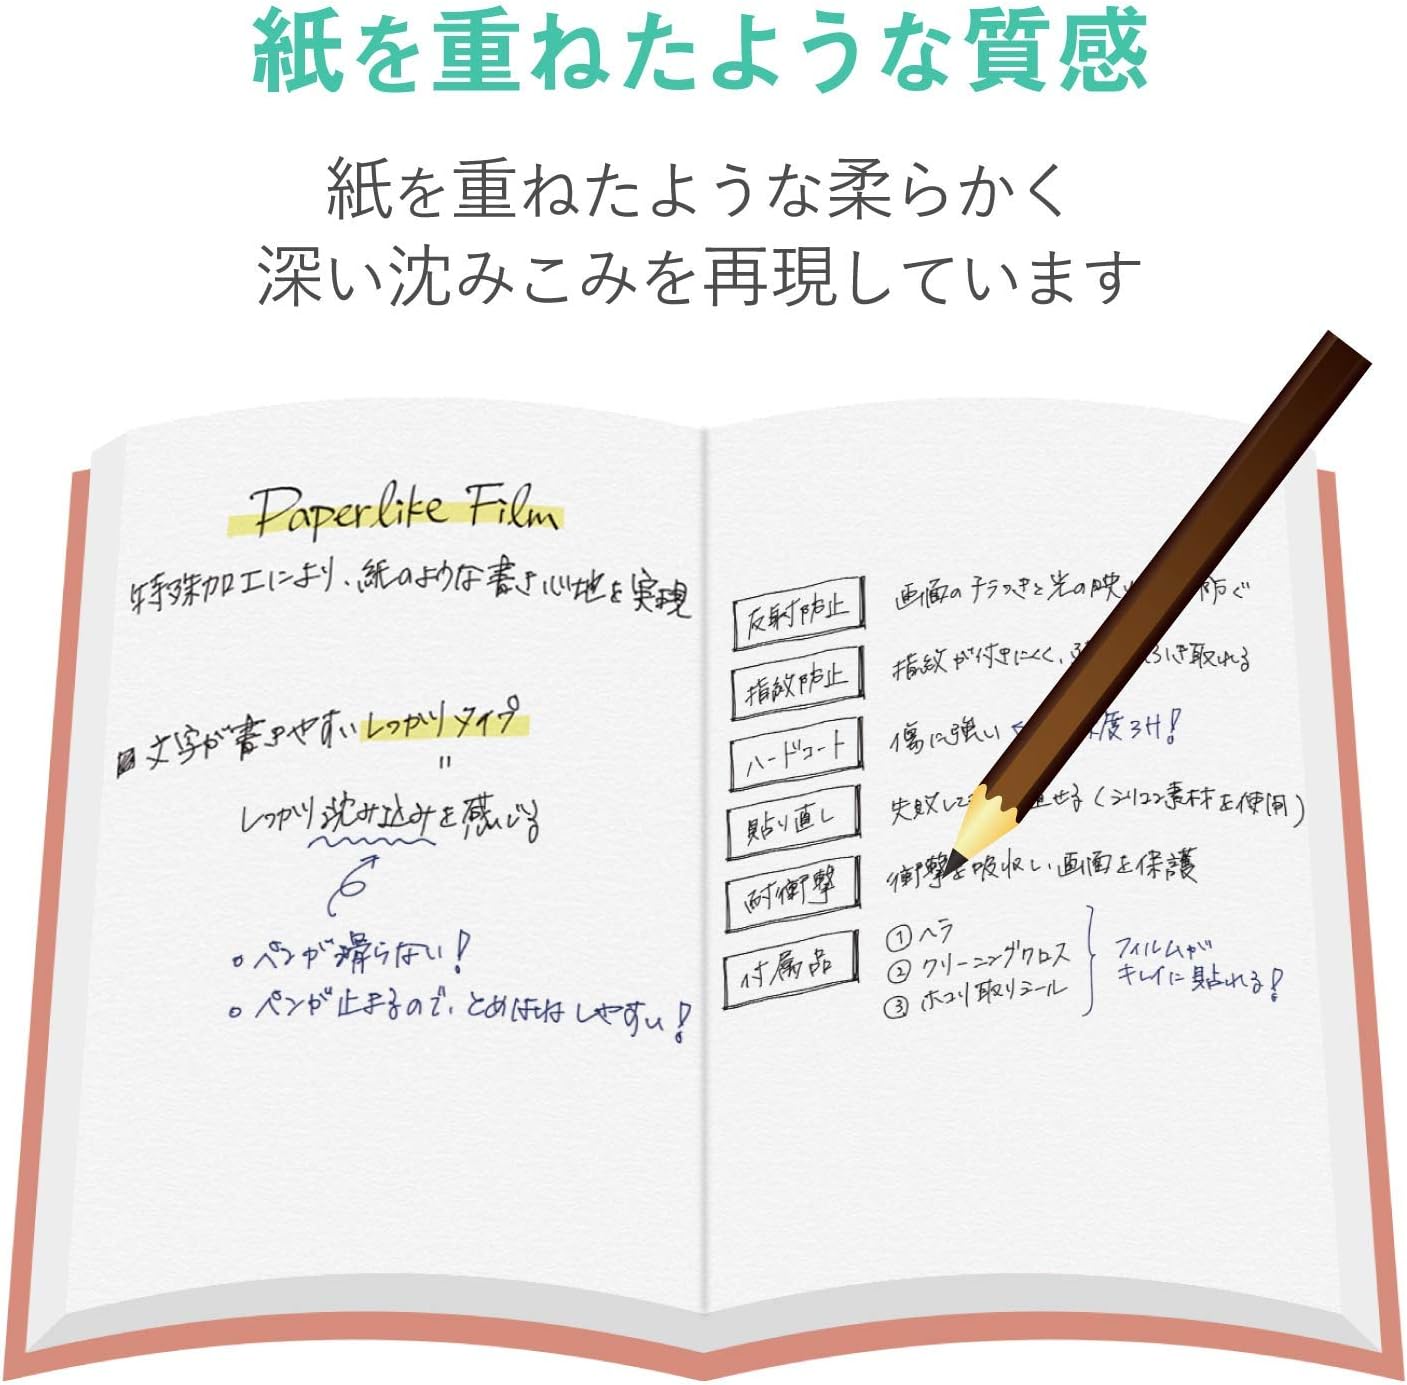 紙を重ねたような質感
紙を重ねたような柔らかく
深い沈みこみを再現しています
Paperlike Film
特殊加工により、紙のような書き心地を実現
文字が書きやすいしっかりタイプ
しっかり沈み込みを感じる
ペンが滑らない！
ペンが止まるので、とめはねしやすい！
反射防止 画面のチラつきと光の映り 防ぐ
指紋防止 指紋が付きにくく、 ふき取れる
ハードコート 傷に強い 度3H！
貼り直し 失敗して 直せる（シリコン素材を使用）
耐衝撃 衝撃を吸収し、画面を保護
付属品 ①ヘラ
②クリーニングクロス
③ホコリ取りシール
フィルムが
キレイに貼れる！